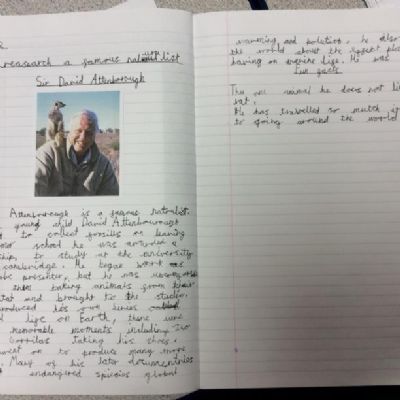 reasearch a famous naturalist
Sir David Attenborough
Attenborough is a famous naturalist.
young child David Attenbourough
to collect fossils on leaving
school he was awarded a
ship to study at the university
cambridge. He began work as
presenter, but he was
taking animals from their
tat and brought to the studio.
produced his own series called
life on Earth, there were
memorable moments including two
Gorrilas taking his shoes.
went on to produce many more
Many of his later documenteries
endangered species global
warming and polution, he also
the world about the effect pla
having on marine life. He was
fun facts
The one animal he does not li
rat.
He has travelled so much it
to going around the world